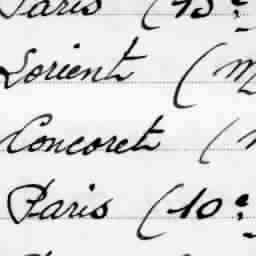 Paris (15e
Lorient (M
Concoret (
Paris (10e